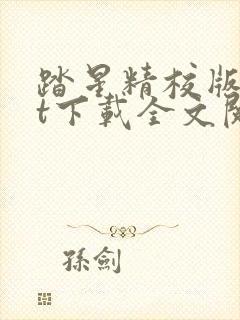 踏星精校版
t下載全文閱
孫劍